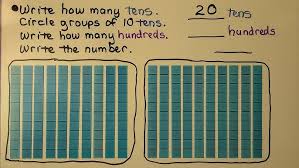 •Write how many tens.
20 tens
Circle groups of 10 tens.
Write how many hundreds.
____ hundreds
Write the number.
____